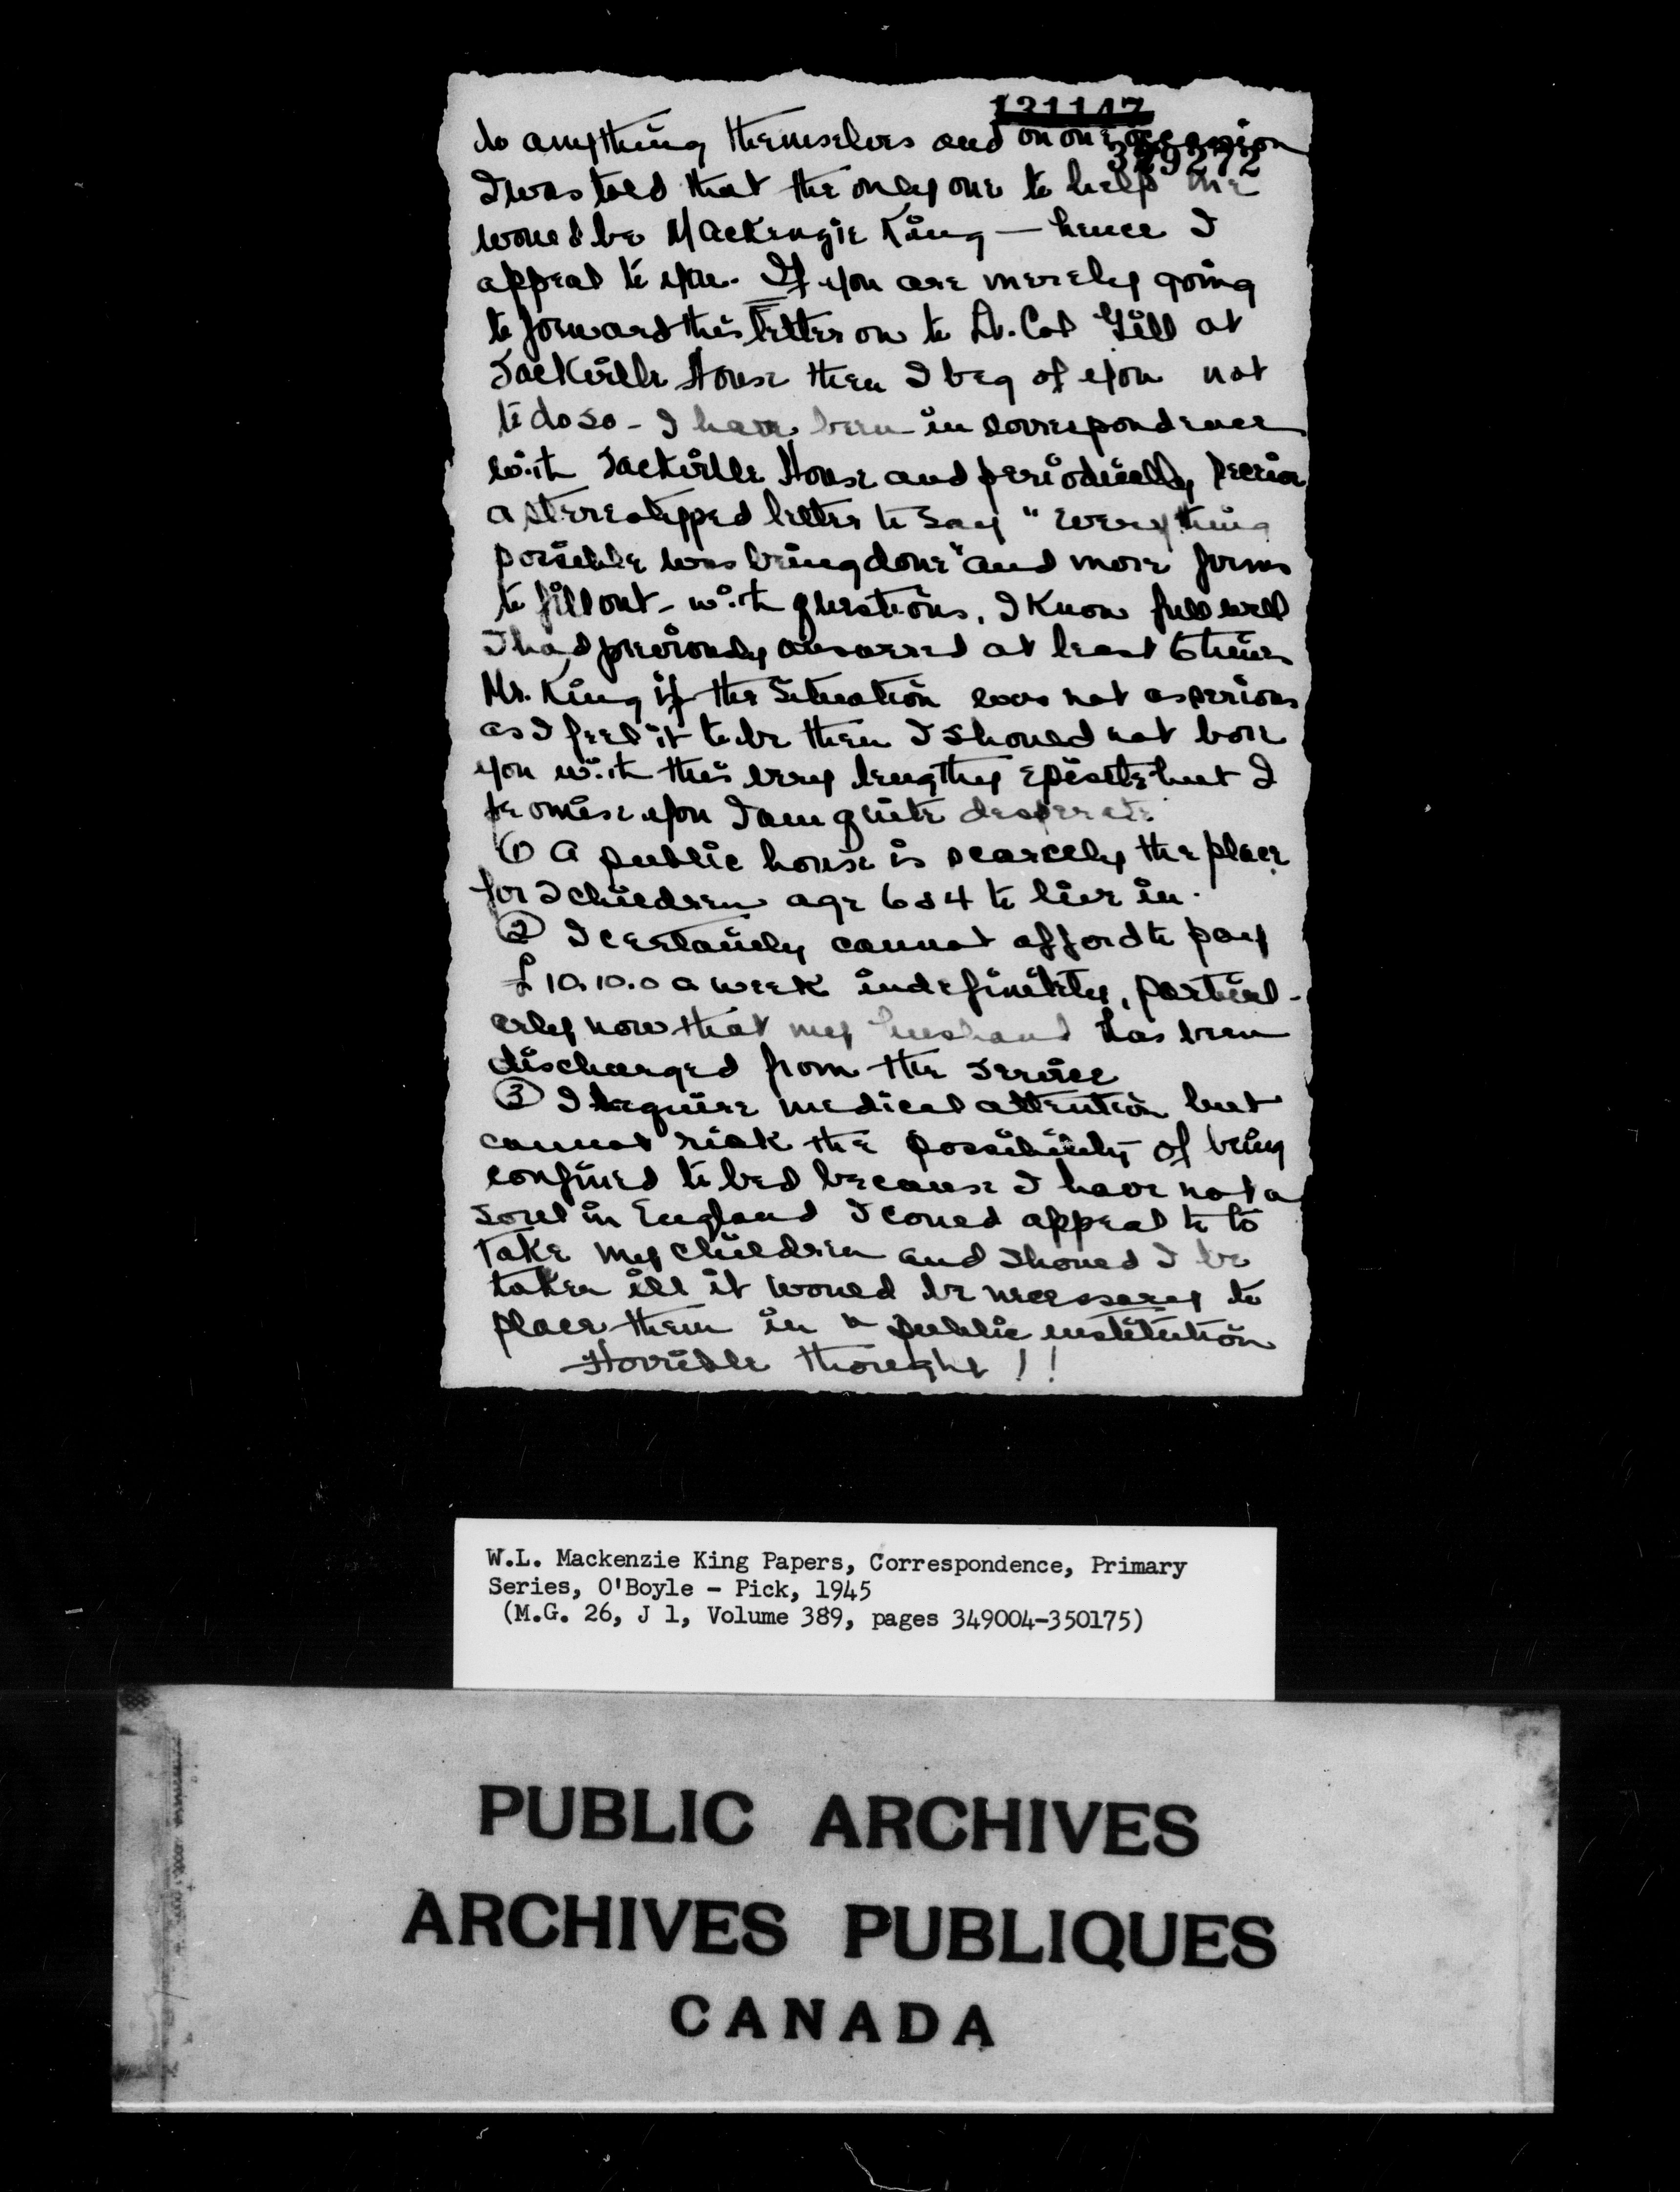 131147
do anything themselves and on one occasion
349272
I was told that the only one to help me
would be Mackenzie King — hence I
appeal to you. If you are merely going
to forward this letter on to Lt. Col Gill at
Sackville House then I beg of you not
to do so - I have been in correspondence
with Sackville House and periodically receive
a stereotypped letter to say "everything
possible was being done" and more forms
to fill out - with questions, I know full well
I had previously answered at least 6 times
Mr. King if the situation was not as serious
as I feel it to be then I should not bore
you with this very lengthy epistle but I
promise you I am quite desperate.
(1) A public house is scarcely the place
for 2 children age 6 & 4 to live in.
(2) I certainly cannot afford to pay
£10.10.0 a week indefinitely, particul-
arly now that my husband has been
discharged from the service
(3) I require medical attention but
cannot risk the possibility of being
confined to bed because I have not a
soul in England I could appeal to to
take my children and should I be
taken ill it would be necessary to
place them in a public institution
Horrible thought!!
W.L. Mackenzie King Papers, Correspondence, Primary
Series, O'Boyle - Pick, 1945
(M.G. 26, J 1, Volume 389, pages 349004-350175)
PUBLIC ARCHIVES
ARCHIVES PUBLIQUES
CANADA